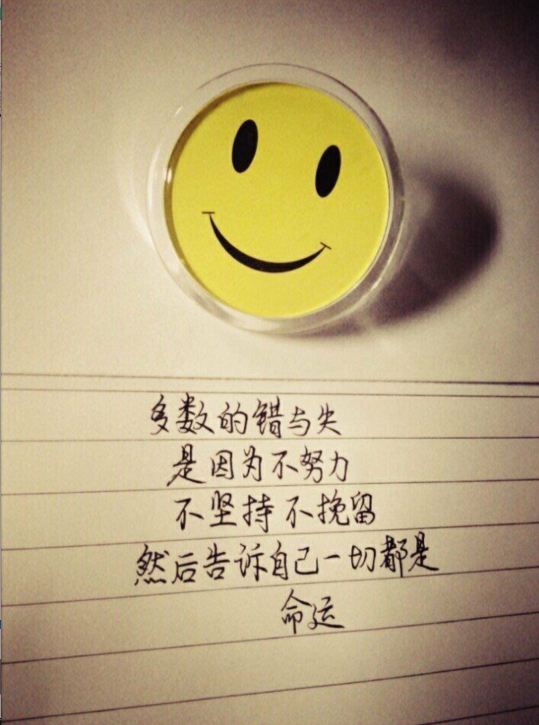 多数的错与失
是因为不努力
不坚持 不挽留
然后告诉自己一切都是
命运